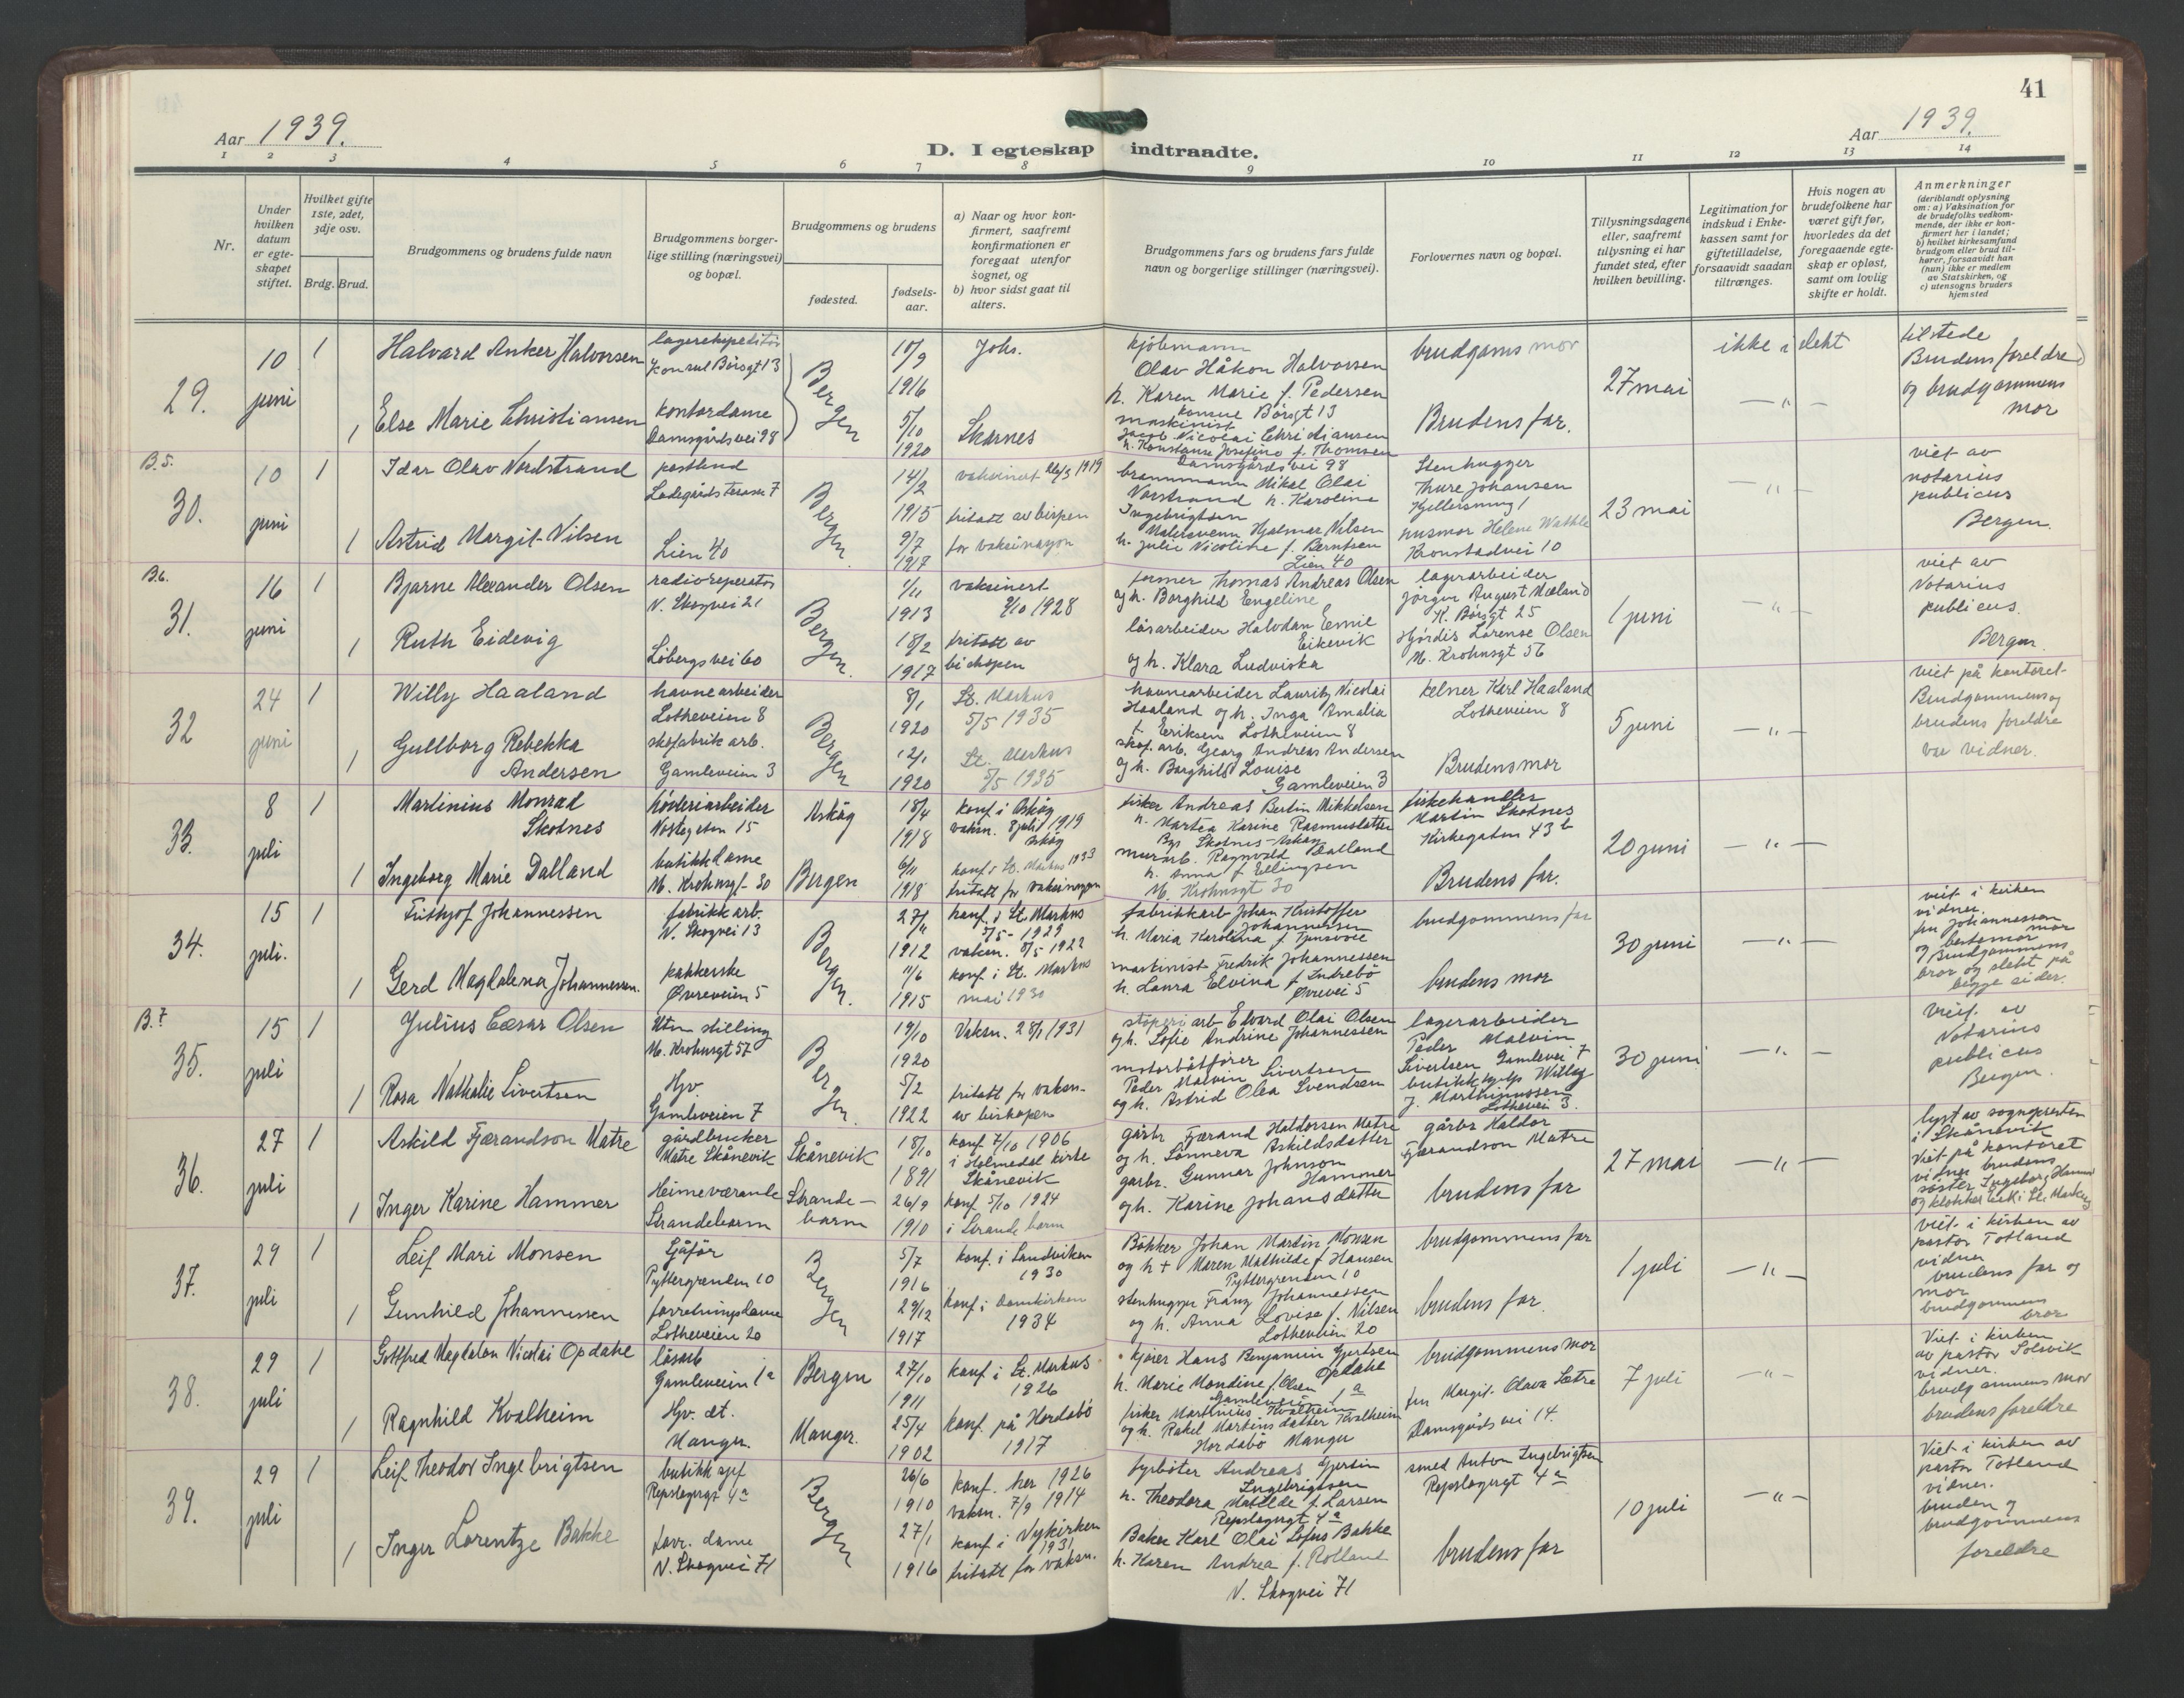 41
Aar 1939.
D. I egteskap indtraadte.
Aar 1939.
1 2 3 4 5 6 7 8 9 10 11 12 13 14
Nr.
Under hvilken datum er egteskapet stiftet.
Hvilket gifte 1ste, 2det, 3dje osv.
Brdg. Brud.
Brudgommens og brudens fulde navn
Brudgommens borgerlige stilling (næringsvei) og bopæl.
Brudgommens og brudens
fødested.
fødselsaar.
a) Naar og hvor konfirmert, saafremt konfirmationen er foregaat utenfor sognet, og
b) hvor sidst gaat til alters.
Brudgommens fars og brudens fars fulde navn og borgerlige stillinger (næringsvei).
Forlovernes navn og bopæl.
Tillysningsdagene eller, saafremt tillysning ei har fundet sted, efter hvilken bevilling.
Legitimation for indskud i Enkekassen samt for giftetilladelse, forsaavidt saadan tiltrænges.
Hvis nogen av brudefolkene har været gift før, hvorledes da det foregaaende egteskap er opløst, samt om lovlig skifte er holdt.
Anmerkninger
(deriblandt oplysning om: a) Vaksination for de brudefolks vedkommende, der ikke er konfirmert her i landet; b) hvilket kirkesamfund brudgom eller brud tilhører, forsaavidt han (hun) ikke er medlem av Statskirken, og c) utensogns bruders hjemsted
29.
10 juni
1
Halvard Anker Halvorsen
lagerekspeditør
Konsul Børsgt 13
Bergen
10/9 1916
Johs.
kjøbmann
Olav Håkon Halvorsen
h. Karen Marie f. Pedersen
Konsul Børsgt 13
brudgoms mor
27 mai
ikke i slekt
tilstede
Brudens foreldre
og brudgommens
mor
1
Else Marie Christiansen
kontordame
Damsgårdsvei 98
5/10 1920
Skarnes
maskinist
Jacob Nicolai Christiansen
h. Konstanse Josefine f. Thomsen
Damsgårdsvei 98
Brudens far.
B.5.
30.
10 juni
1
Idar Olav Nordstrand
postbud
Ladegårds terasse 7
Bergen.
14/2 1915
vaksinert 26/3 1919
brannmann Mikal Olai
Norstrand h. Karoline
Ingebrigtsen
Stenhugger
Thure Johansen
Kjellersmug 1
23 mai
— " —
viet av
notarius
publicus
Bergen.
1
Astrid Margit Nilsen
Lien 40
9/7 1917
fritatt av bispen
for vaksinasjon
Malersvenn Hjalmar Nilsen
h. Julie Nicoline f. Berntsen
Lien 40
husmor Helene Wathle
Kronstadvei 10
B.6.
31.
16 juni
1
Bjarne Alexander Olsen
radioreperatør
N. Skogvei 21
Bergen.
1/11 1913
vaksinert
9/10 1928
former Thomas Andreas Olsen
og h. Borghild Engeline
lagerarbeider
Jørgen August Mæland
K. Børsgt 25
1 juni
— " —
viet av
Notarius
publicus.
Bergen.
1
Ruth Eidevig
Løbergsvei 60
18/2 1917
fritatt av
bishopen
løsarbeider Halvdan Emil
Eikevik
og h. Klara Ludviska
Hjørdis Lorense Olsen
M. Krohnsgt 56
32
24 juni
1
Willy Haaland
havnearbeider
Lotheveien 8
Bergen
8/1 1920
St. Markus
5/5 1935
havnearbeider Lauritz Nicolai
Haaland og h. Inga Amalia
f. Eriksen Lotheveien 8
kelner Karl Haaland
Lotheveien 8
5 juni
— " —
viet på kontoret
Brudgommens og
brudens foreldre
var vidner.
1
Gullborg Rebekka
Andersen
skofabrik arb.
Gamleveien 3
12/1 1920
St. Markus
5/5 1935
skof. arb. Georg Andreas Andersen
og h. Borghild Louise
Gamleveien 3
Brudens mor
33.
8 juli
1
Martinius Monrad
Skotnes
Nøstegaten 15
Askøy
18/4 1918
konf. i Askøy
vaksn. 8 juli 1919
Askøy
fisker Andreas Bertin Mikkelsen
h. Martea Karine Rasmusdatter
Skotnes - Askøy
fiskehandler
Martin Skotnes
Kirkegaten 43 b
20 juni
— " —
1
Ingeborg Marie Dalland
butikkdame
M. Krohnsgt 30
Bergen
6/11 1918
konf. i St. Markus 1933
fritatt for vaksinasjon
murarb. Ragnvald Dalland
h. Anna f. Ellingsen
M. Krohnsgt 30
Brudens far.
34.
15 juli.
1
Frithjof Johannessen
fabrikk arb.
N. Skogvei 13
Bergen.
1912
konf. i St. Markus
vaksn. 8/5 1922
fabrikkarb Johan Kristoffer
Johannessen
h. Maria Karolina f.
brudgommens far
30 juni
— " —
viet i kirken
vidner.
fru Johannessen
og bestemor
Brudgommens
bror og slekt på
begge sider.
1
Gerd Magdalena Johannessen.
pakkerske
Øvreveien 5
11/6 1915
konf. i St. Markus
mai 1930
maskinist Fredrik Johannessen
h. Laura Elvina f. Indrebø
Øvrevei 5
brudens mor
B.7
35.
15 juli
1
Julius Cæsar Olsen
Uten stilling
M. Krohnsgt 57
Bergen.
19/10 1920
Vaksn. 28/1 1931
støperi arb Edvard Olai Olsen
og h. Sofie Andrine Johannessen
lagerarbeider
Peder Malvin
Sivertsen Gamlevei 7
30 juni
— " —
Viet av
Notarius
publicus
Bergen.
1
Rosa Nathalie Sivertsen
Hjv.
Gamleveien 7
5/2 1922
fritatt for vaksn.
av biskopen
motorbåtfører
Peder Malvin Sivertsen
og h. Astrid Olea Svendsen
butikkhjelp Willy
J. Marthinussen
Lothevei 3.
36.
27 juli
1
Askild Fjærandson Matre
gårdbruker
Matre Skånevik
Skånevik
18/10 1891
konf. 7/10 1906
i Holmedal kirke
Skånevik
gårbr Fjærand Haldorsen Matre
og h. Sønneva Askildsdatter
gårbr Haldor
Fjærandson Matre
27 mai
— " —
lyst av sognepresten
i Skånevik
Viet på kontoret
vidner brudens
søster Ingeborg Hammer
og klokker i St. Markus
1
Inger Karine Hammer
Heimeværande
Strandebarm
Strandebarm
26/9 1910
konf. 5/10 1924
i Strandebarm
gårbr. Gunnar Johnson
Hammer
og h. Karine Johansdatter
brudens far
37.
29 juli
1
Leif Mari Monsen
Sjåfør
Pyttergrenden 10
Bergen
5/7 1916
konf. i Sandviken
1930
Bøkker Johan Martin Monsen
og h + Maren Mathilde f Hansen
Pyttergrenden 10
brudgommens far
1 juli
— " —
viet i kirken av
pastor Totland
vidner
brudens far og
mor
brudgommens
bror
1
Gunhild Johannessen
forretningsdame
Lotheveien 20
29/12 1917
konf i Domkirken
1934
stenhugger Franz Johannessen
og h. Anna Lovise f. Nilsen
Lotheveien 20
brudens far.
38.
29 juli
1
Gottfred Magdalon Nicolai Opdahl
løsarb
Gamleveien 1a
Bergen
27/10 1911
konf. i St. Markus
1926
kjører Hans Benjamin Gjertsen
Opdahl
h. Marie Mondine f. Olsen
Gamleveien 1a
brudgommens mor
7 juli
— " —
Viet i kirken
av pastor Solsvik
vidner.
brudgommens mor
brudens foreldre
1
Ragnhild Kvalheim
Hjv. dt.
Manger.
Manger.
25/4 1902
konf. på Hordabø
1917
fisker Martinius Kvalheim
og h. Rakel Martinsdatter Kvalheim
Hordabø Manger
fru Margit Olava Sætre
Damsgårdsvei 14.
39.
29 juli
1
Leif Theodor Ingebrigtsen
butikk sjef
Repslagergt 4a
Bergen
26/6 1910
konf. her 1926
vaksn. 7/9 1914
fyrbøter Andreas Gjertin
Ingebrigtsen
h. Theodora Matilde f. Larsen
Repslagergt 4a
smed Anton Ingebrigtsen
Repslagergt 4a
10 juli
— " —
Viet i kirken av
pastor Totland
vidner.
bruden og
brudgommens
foreldre
1
Inger Lorentze Bakke
forr. dame
N. Skogvei 71
27/1 1916
konf i Nykirken
1931
fritatt for vaksn.
Baker Karl Olai Sofus Bakke
h. Karen Andrea f. Rolland
N. Skogvei 71
brudens far